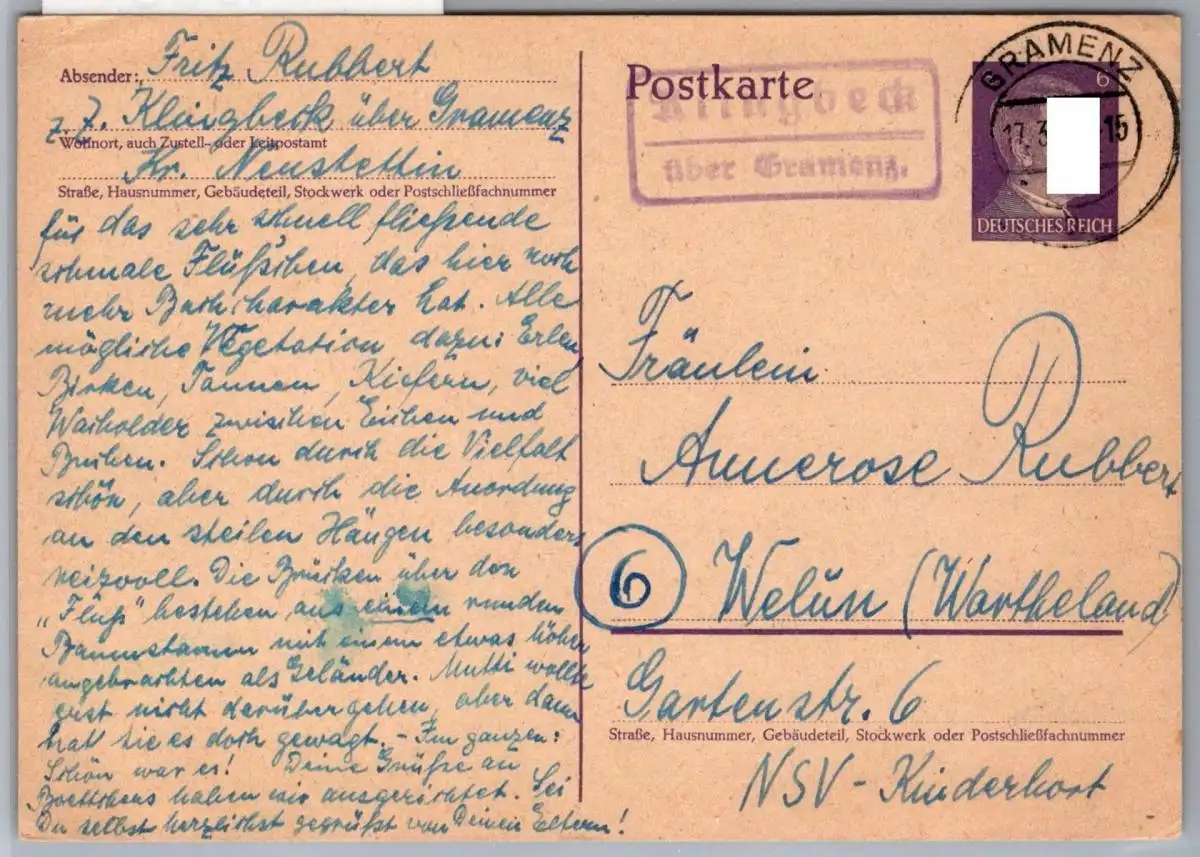 Absender: Fritz Rubbert
z. Z. Klingbeck über Gramenz
Wohnort, auch Zustell- oder Leitpostamt
Kr. Neustettin
Straße, Hausnummer, Gebäudeteil, Stockwerk oder Postschließfachnummer
für das sehr schnell fließende
schmale Flüßchen, das hier noch
mehr Bachcharakter hat. Alle
mögliche Vegetation dazu: Erlen,
Birken, Tannen, Kiefern, viel
Wacholder zwischen Eichen und
Buchen. Schon durch die Vielfalt
schön, aber durch die Anordnung
an den steilen Hängen besonders
reizvoll. Die Brücken über den
„Fluß" bestehen aus einem runden
Baumstamm mit einem etwas höher
angebrachten als Geländer. Mutti wollte
erst nicht darübergehen, aber dann
hat sie es doch gewagt. - Im ganzen:
Schön war es! Deine Grüße an
Boettchers haben wir ausgerichtet. Sei
Du selbst herzlichst gegrüßt von Deinen Eltern!
Postkarte
Klingbeck
über Gramenz.
GRAMENZ
17.3. -15
6
DEUTSCHES REICH
Fräulein
Annerose Rubbert
6 Welun (Wartheland)
Gartenstr. 6
Straße, Hausnummer, Gebäudeteil, Stockwerk oder Postschließfachnummer
NSV-Kinderhort